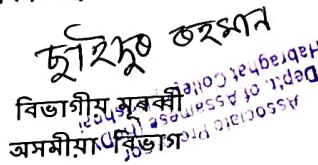 ছাইদুৰ ৰহমান
বিভাগীয় মূৰব্বী
অসমীয়া বিভাগ
Associate
Deptt. of Assamese
Habraghat College